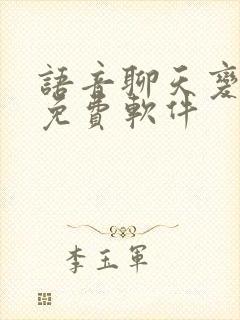 語音聊天變
免費軟件
李玉軍